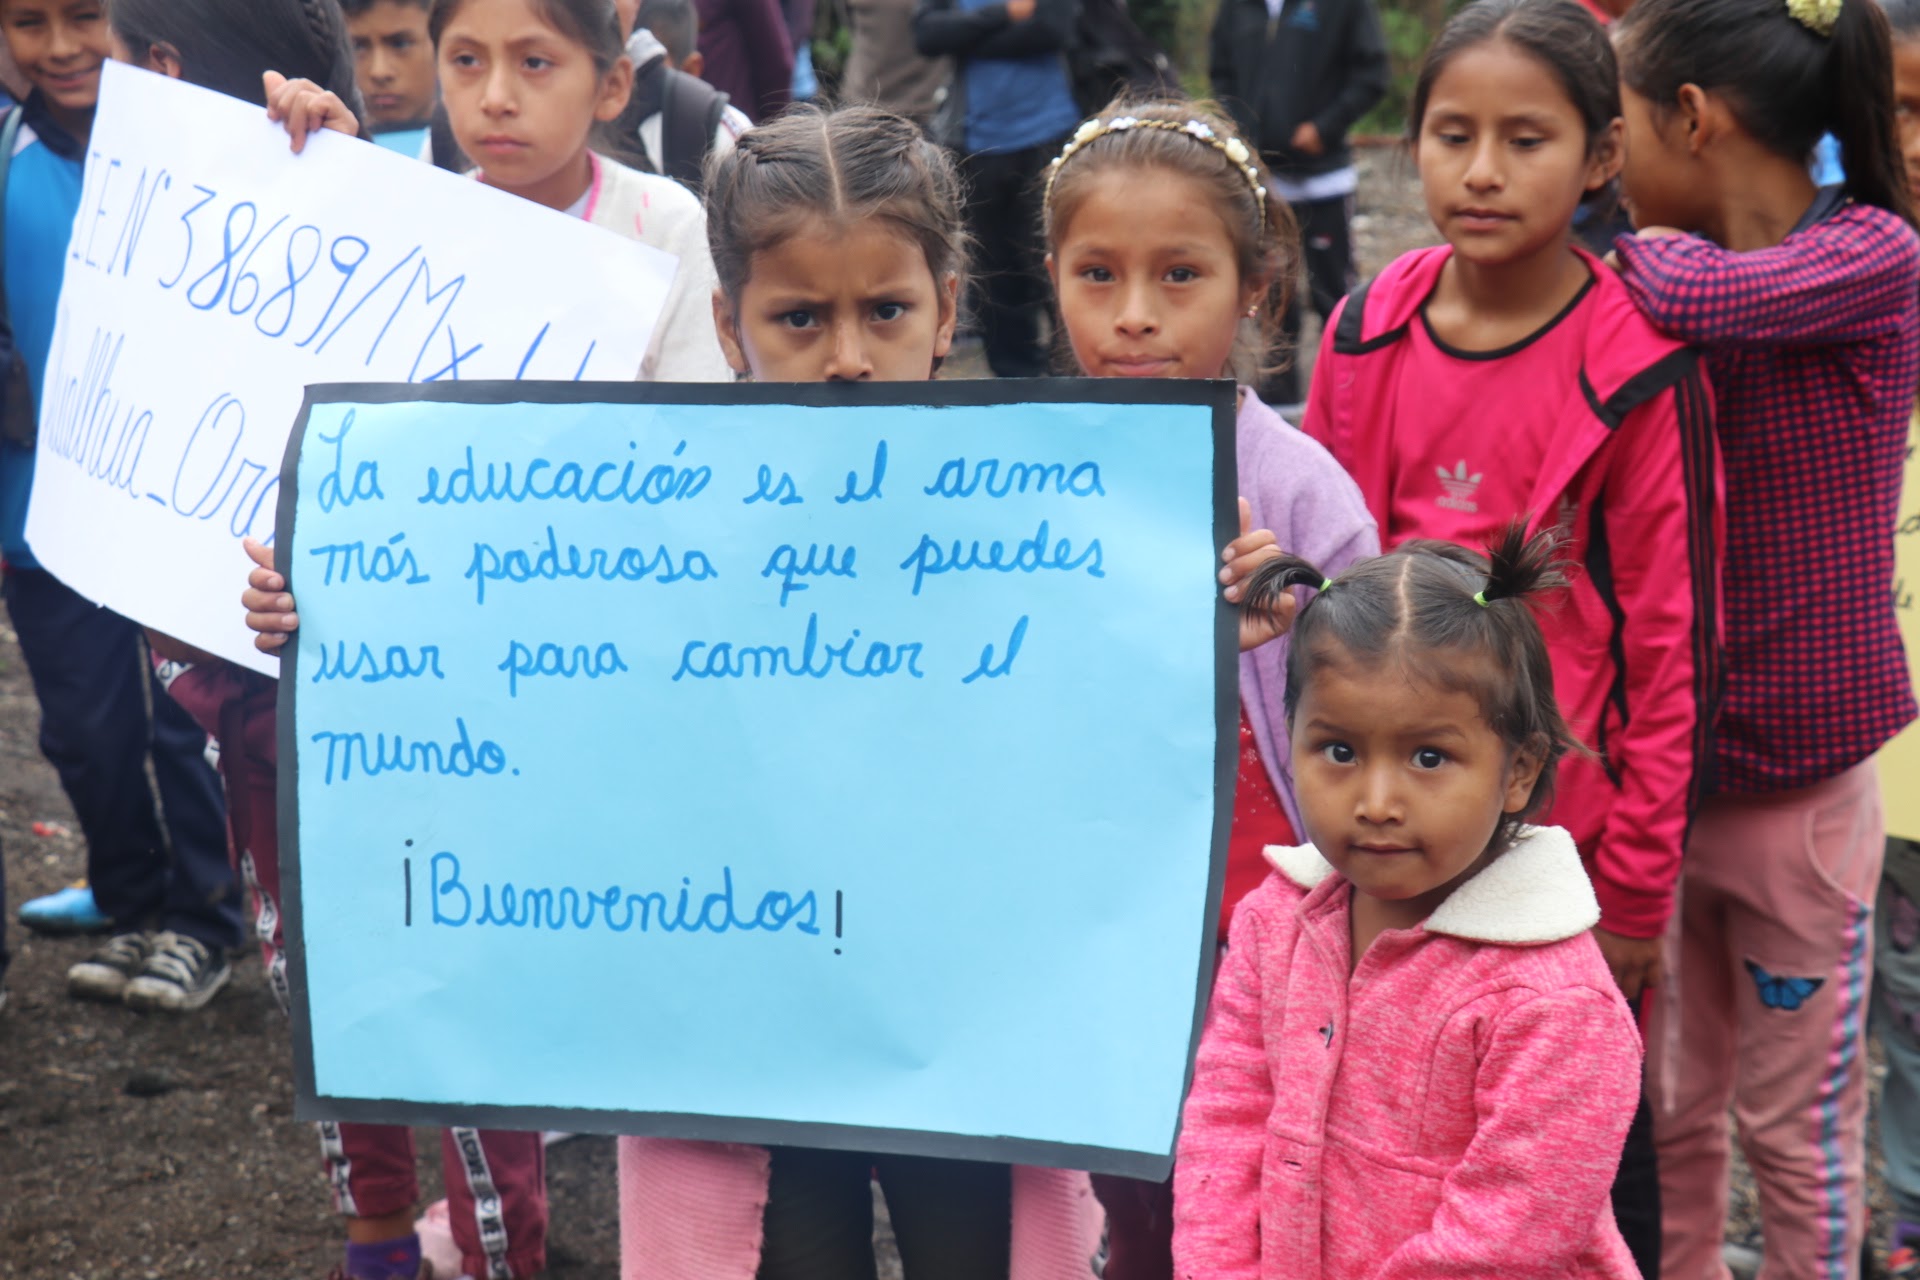 I.E. N° 38689/Mx
Orc
La educación es el arma
más poderosa que puedes
usar para cambiar el
mundo.
¡Bienvenidos!
adidas
LOVE